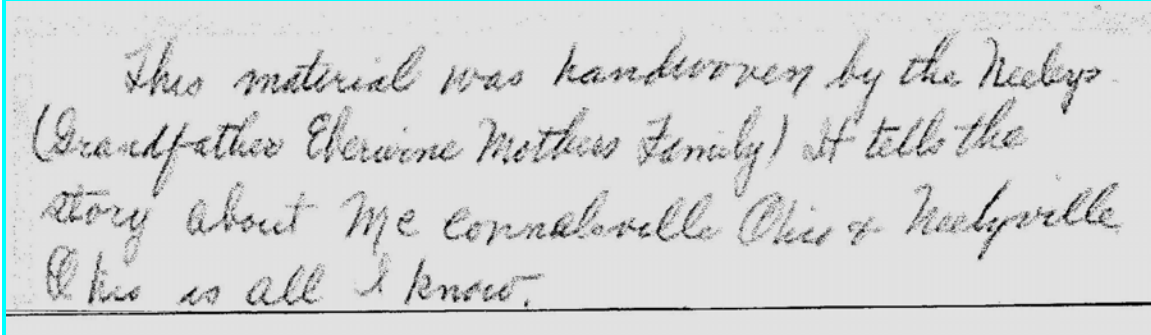 This material was handwoven by the Neelys
(Grandfather Eberwine Mothers Family) It tells the
story about Mc Connalsville Ohio & Neelyville
Ohio is all I know.